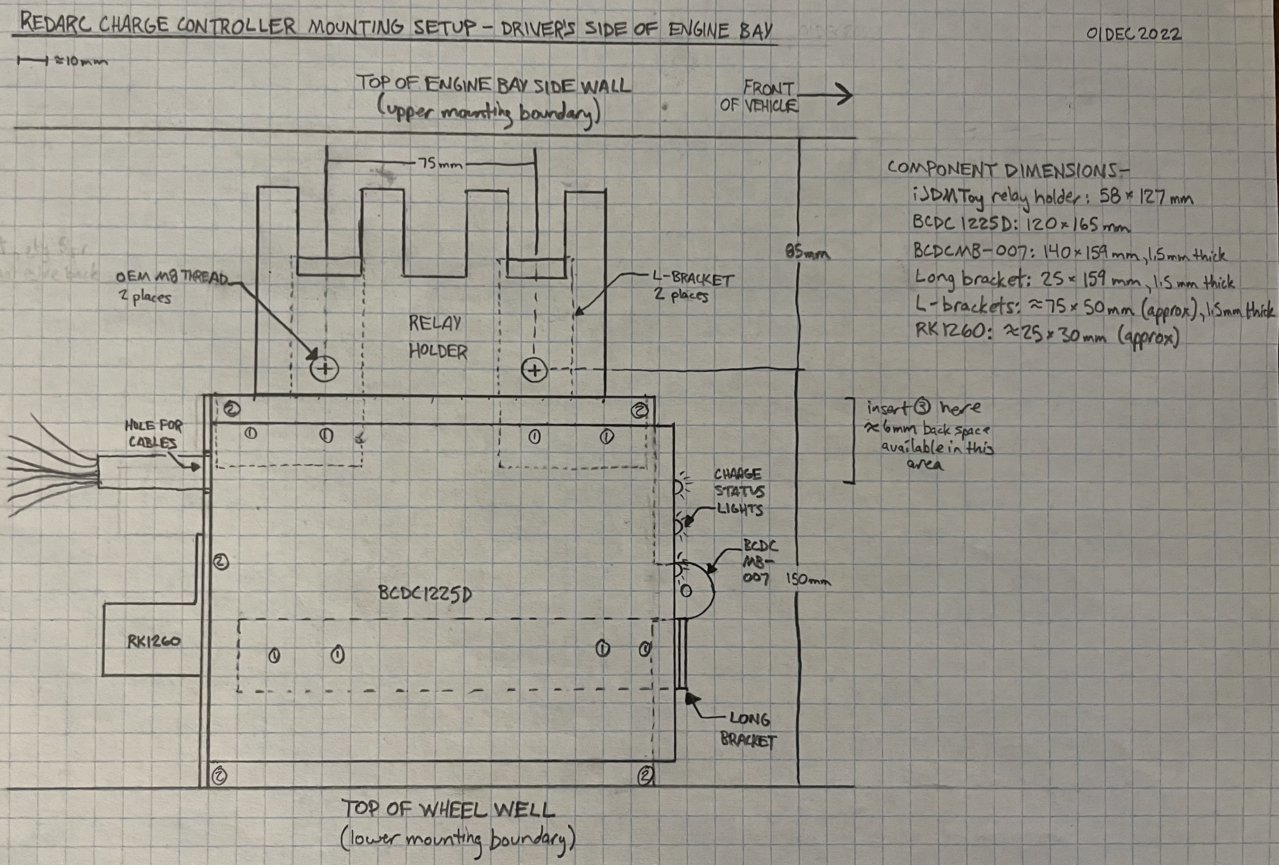 REDARC CHARGE CONTROLLER MOUNTING SETUP - DRIVER'S SIDE OF ENGINE BAY
01DEC2022
≈10mm
TOP OF ENGINE BAY SIDE WALL
(upper mounting boundary)
FRONT
OF VEHICLE
75mm
COMPONENT DIMENSIONS-
iJDMToy relay holder: 58 × 127 mm
BCDC 1225D: 120 × 165 mm
BCDCMB-007: 140 × 159 mm, 1.5mm thick
Long bracket: 25 × 159 mm, 1.5 mm thick
L-brackets: ≈ 75 × 50 mm (approx), 1.5mm thick
RK1260: ≈ 25 × 30 mm (approx)
85mm
OEM M8 THREAD
2 places
L-BRACKET
2 places
RELAY
HOLDER
② ②
① ① ① ①
HOLE FOR
CABLES
insert ③ here
≈ 6mm back space
available in this
area
CHARGE
STATUS
LIGHTS
②
BCDC
MB-
007
150mm
BCDC1225D
RK1260
① ① ① ①
LONG
BRACKET
② ②
TOP OF WHEEL WELL
(lower mounting boundary)